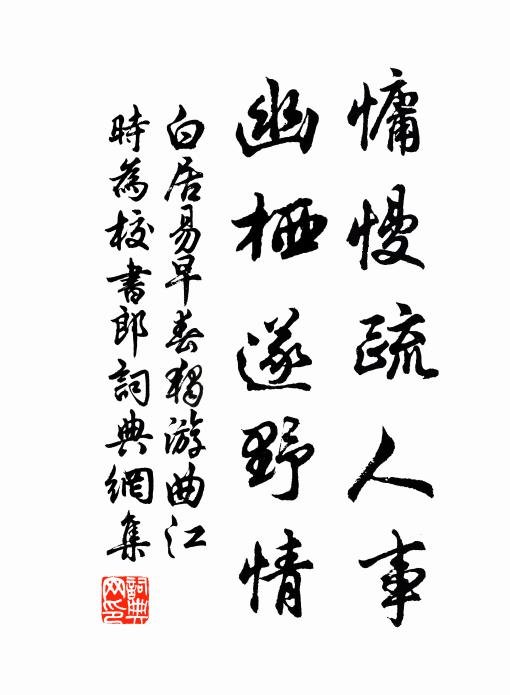 慵慢疏人事
幽栖遂野情
白居易早春獨游曲江
時為校書郎詞典網集
詞典網印